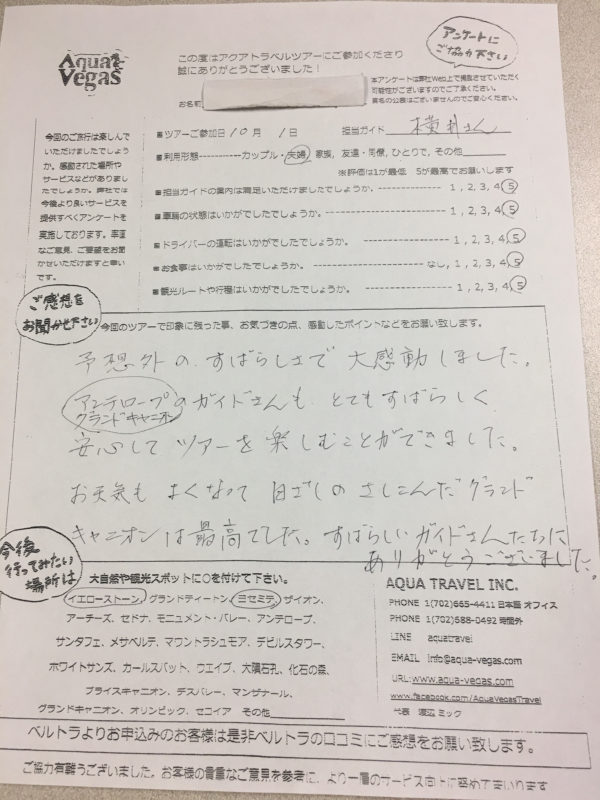 Aqua Vegas
この度はアクアトラベルツアーにご参加くださり
誠にありがとうございました！
アンケートに
ご協力下さい
本アンケートは弊社Web上で掲載させていただく
可能性がございますのでご了承ください。
実名の公表はございませんのでご安心ください。
お名前
今回のご旅行は楽しんで
いただけましたでしょう
か。感動された場所や
サービスなどがありまし
たでしょうか。弊社では
今後より良いサービスを
提供すべくアンケートを
実施しております。率直
なご意見、ご要望をお聞
かせいただけますと幸い
です。
■ツアーご参加日 10月 1日 担当ガイド 横井さん
■利用形態 カップル・夫婦, 家族, 友達・同僚, ひとりで, その他
※評価は1が最低 5が最高でお願いします
■担当ガイドの案内は満足いただけましたでしょうか 1, 2, 3, 4, 5
■車両の状態はいかがでしたでしょうか。 1, 2, 3, 4, 5
■ドライバーの運転はいかがでしたでしょうか。 1, 2, 3, 4, 5
■お食事はいかがでしたでしょうか。 なし, 1, 2, 3, 4, 5
■観光ルートや行程はいかがでしたでしょうか。 1, 2, 3, 4, 5
ご感想を
お聞かせ下さい
今回のツアーで印象に残った事、お気づきの点、感動したポイントなどをお願い致します。
予想外の すばらしさで 大感動しました。
アンテロープの
グランドキャニオン
ガイドさんも とてもすばらしく
安心して ツアーを 楽しむことができました。
お天気も よくなって 日ざしの さしこんだ グランド
キャニオンは 最高でした。すばらしい ガイドさんたちに
ありがとうございました。
今後
行ってみたい
場所は
大自然や観光スポットに○を付けて下さい。
イエローストーン, グランドティートン, ヨセミテ, ザイオン,
アーチーズ, セドナ, モニュメント・バレー, アンテロープ,
サンタフェ, メサベルデ, マウントラシュモア, デビルスタワー,
ホワイトサンズ, カールスバット, ウエイブ, 大隕石孔, 化石の森,
ブライスキャニオン, デスバレー, マンザナール,
グランドキャニオン, オリンピック, セコイア その他
AQUA TRAVEL INC.
PHONE 1(702)665-4411 日本語 オフィス
PHONE 1(702)588-0492 時間外
LINE aquatravel
EMAIL info@aqua-vegas.com
URL: www.aqua-vegas.com
www.facebook.com/AquaVegasTravel
代表 渡辺 ミック
ベルトラよりお申込みのお客様は是非ベルトラの口コミにご感想をお願い致します。
ご協力有難うございました。お客様の貴重なご意見を参考に、より一層のサービス向上に努めてまいります